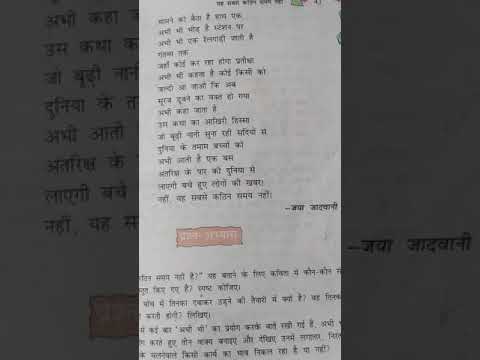 यह सबसे कठिन समय नहीं
थामने को बैठा है हाथ एक
अभी भी भीड़ है स्टेशन पर
अभी भी एक रेलगाड़ी जाती है
गंतव्य तक
जहाँ कोई कर रहा होगा प्रतीक्षा
अभी भी कहता है कोई किसी को
जल्दी आ जाओ कि अब
सूरज डूबने का वक्त हो गया
अभी कहा जाता है
उस कथा का आखिरी हिस्सा
जो बूढ़ी नानी सुना रही सदियों से
दुनिया के तमाम बच्चों को
अभी आती है एक बस
अंतरिक्ष के पार की दुनिया से
लाएगी बचे हुए लोगों की खबर!
नहीं, यह सबसे कठिन समय नहीं।
–जया जादवानी
प्रश्न-अभ्यास
कठिन समय नहीं है?" यह बताने के लिए कविता में कौन-कौन से
प्रस्तुत किए गए हैं? स्पष्ट कीजिए।
चोंच में तिनका दबाकर उड़ने की तैयारी में क्यों है? वह
करती होगी? लिखिए।
में कई बार 'अभी भी' का प्रयोग करके बातें रखी गई हैं, अभी
करते हुए तीन वाक्य बनाइए और देखिए उनमें लगातार,
चलनेवाले किसी कार्य का भाव निकल रहा है या नहीं?